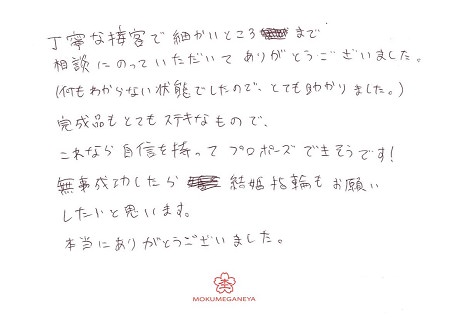 丁寧な接客で細かいところまで
相談にのっていただいてありがとうございました。
(何もわからない状態でしたので、とても助かりました。)
完成品もとてもステキなもので、
これなら自信を持ってプロポーズできそうです!
無事成功したら結婚指輪もお願い
したいと思います。
本当にありがとうございました。
MOKUMEGANEYA